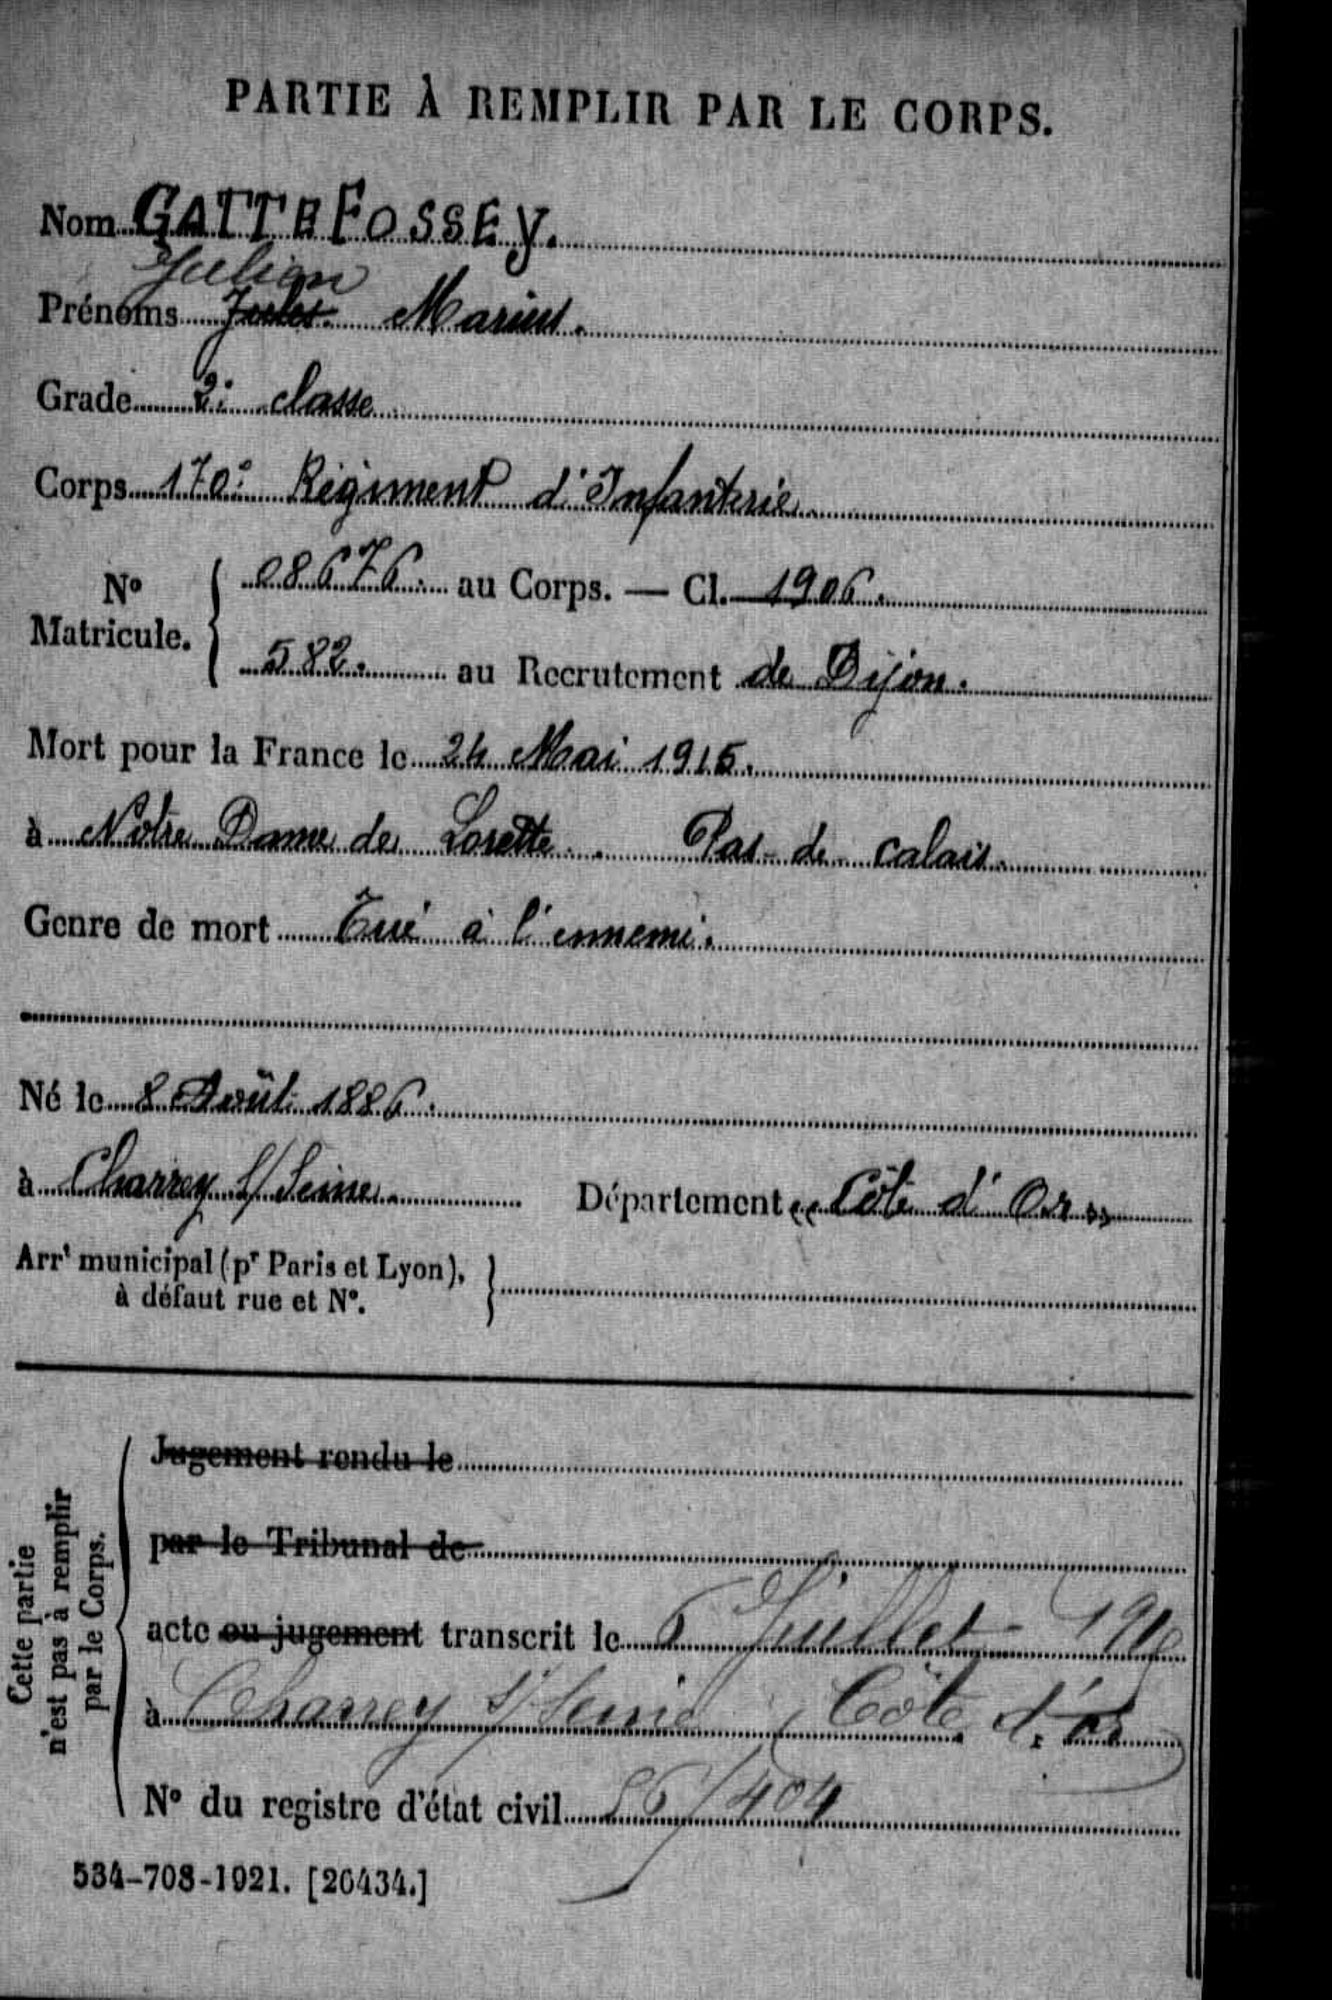 PARTIE À REMPLIR PAR LE CORPS.
Nom GATTEFOSSEY.
Julien
Prénoms Jules Marius.
Grade 2e classe
Corps 170e Régiment d'Infanterie
No Matricule. { 08676. au Corps. — Cl. 1906.
582. au Recrutement de Dijon.
Mort pour la France le 24 Mai 1915.
à Notre Dame de Lorette. Pas-de-calais.
Genre de mort Tué à l'ennemi.
Né le 8 Août 1886.
à Charrey s/Seine. Département « Côte d'Or »
Arrt municipal (pr Paris et Lyon), à défaut rue et No. }
Cette partie n'est pas à remplir par le Corps.
Jugement rendu le
par le Tribunal de
acte ou jugement transcrit le 6 Juillet
à Charrey s/Seine (Côte d'or)
No du registre d'état civil /404
534-708-1921. [26434.]